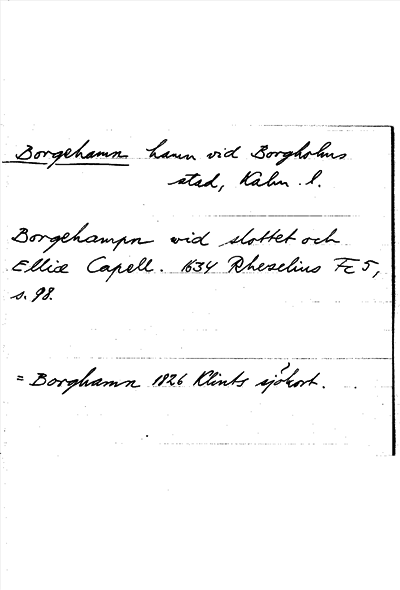 Borgehamn hamn vid Borgholms
stad, Kalm. l.
Borgehampn wid slottet och
Elliæ Capell. 1634 Rhezelius Fc 5,
s. 98.
= Borghamn 1826 Klints sjökort.
?